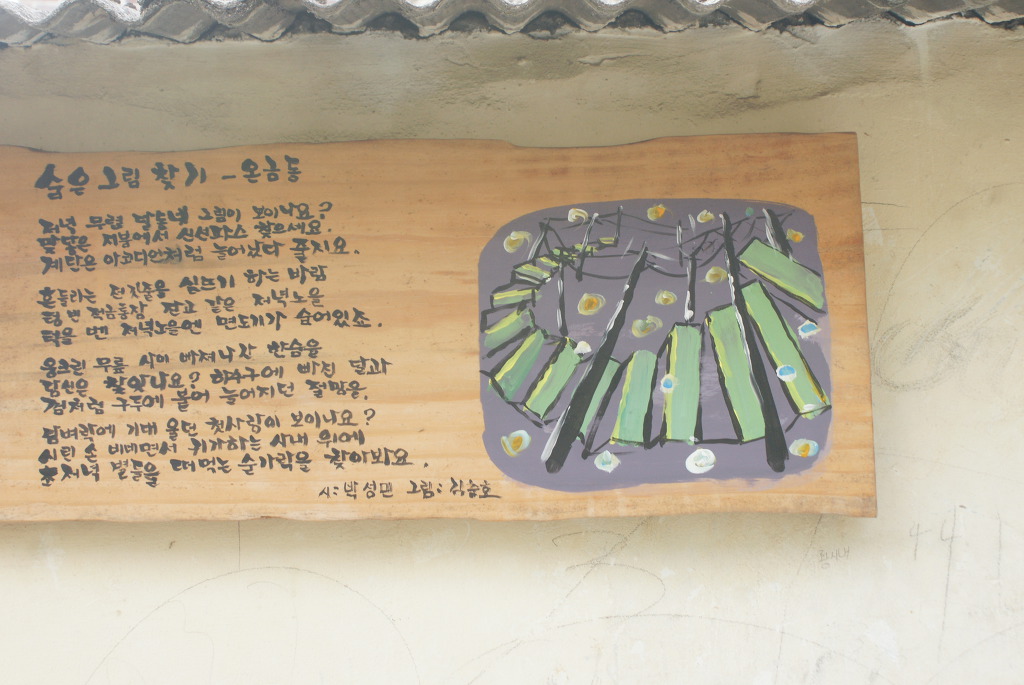 숨은 그림 찾기 - 온금동
저녁 무렵 달동네 그림이 보이나요?
맞닿은 지붕에서 신선파스 찾으세요.
계단은 아코디언처럼 늘어났다 줄지요.
흔들리는 전깃줄을 실뜨기 하는 바람
텅 빈 적금통장 잔고 같은 저녁노을
턱을 벤 저녁노을엔 면도기가 숨어있죠.
웅크린 무릎 사이 빠져나간 한숨을
당신은 찾았나요? 하수구에 빠진 달과
껌처럼 구두에 붙어 늘어지던 절망을.
담벼락에 기대 울던 첫사랑이 보이나요?
시린 손 비비면서 귀가하는 사내 위에
초저녁 별들을 떠먹는 숟가락을 찾아봐요.
시: 박성민 그림:
황시내
3
44